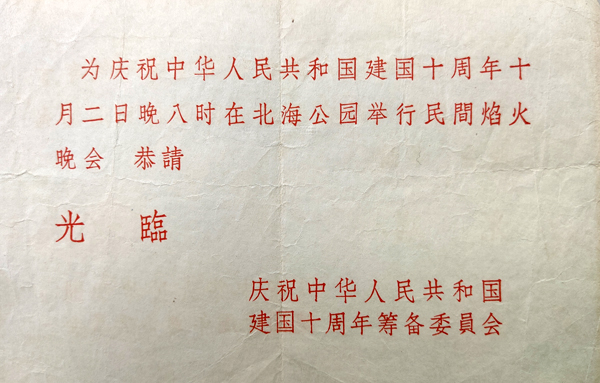 为庆祝中华人民共和国建国十周年十
月二日晚八时在北海公园举行民間焰火
晚会 恭請
光 臨
庆祝中华人民共和国
建国十周年筹备委員会